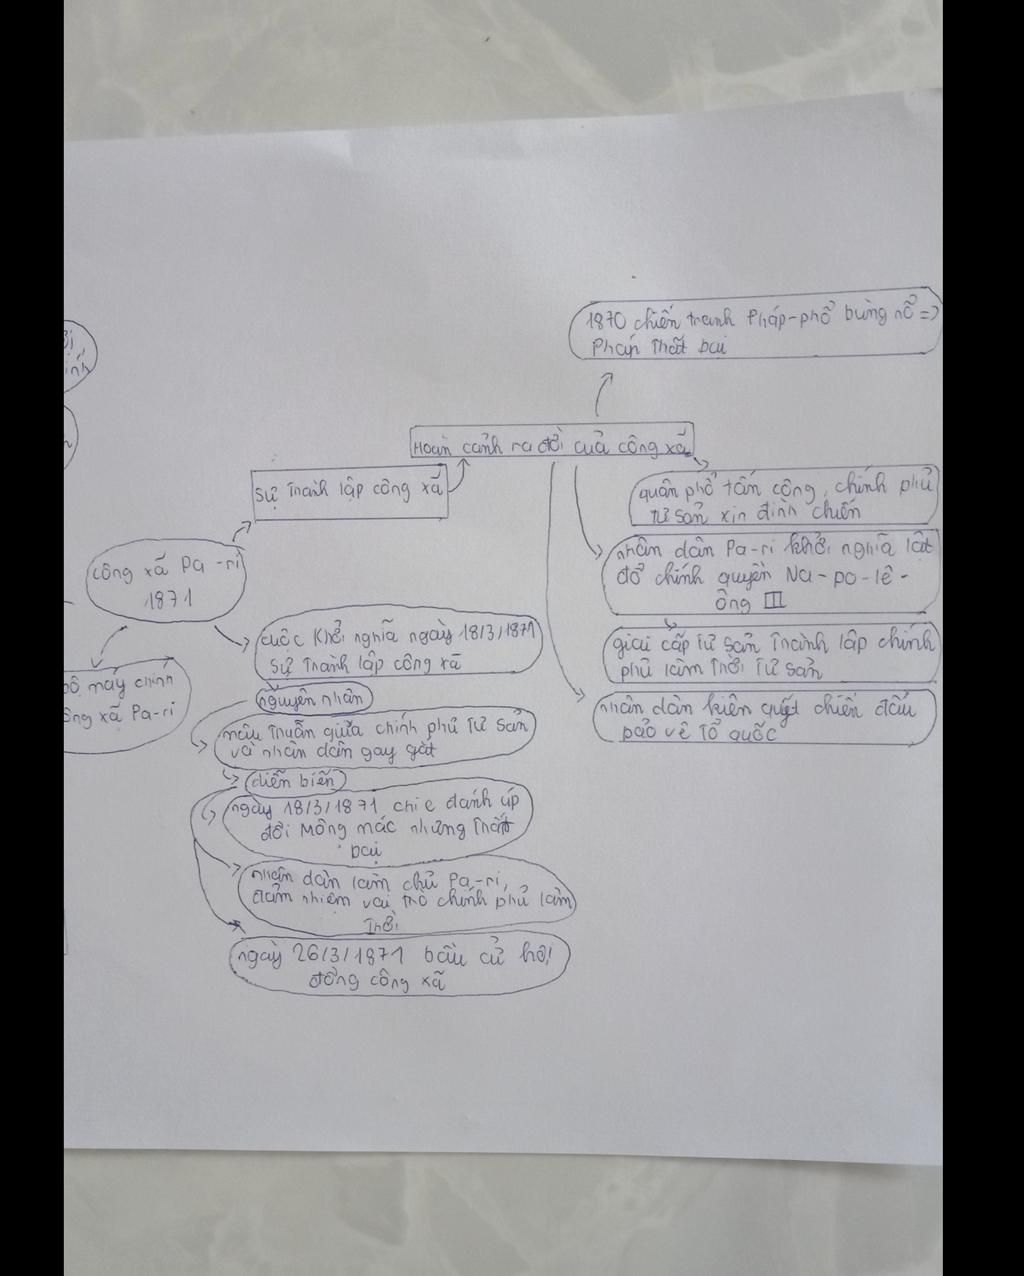 1870 chiến tranh Pháp-phổ bùng nổ =>
Pháp thất bại
Hoàn cảnh ra đời của công xã
Sự thành lập công xã
quân phổ tấn công, chính phủ
tư sản xin đình chiến
nhân dân Pa-ri khởi nghĩa lật
đổ chính quyền Na-po-lê-
ông III
giai cấp tư sản thành lập chính
phủ lâm thời tư sản
nhân dân kiên quyết chiến đấu
bảo vệ tổ quốc
công xã Pa-ri
1871
máy chính
công xã Pa-ri
cuộc khởi nghĩa ngày 18/3/1871
sự thành lập công xã
nguyên nhân
mâu thuẫn giữa chính phủ tư sản
và nhân dân gay gắt
diễn biến
ngày 18/3/1871 chi e đánh úp
đồi Mông mác nhưng thất
bại
nhân dân làm chủ Pa-ri,
đảm nhiệm vai trò chính phủ lâm
thời
ngày 26/3/1871 bầu cử hội
đồng công xã